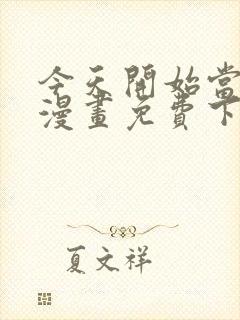 今天開始當
漫畫免費下
夏文祥